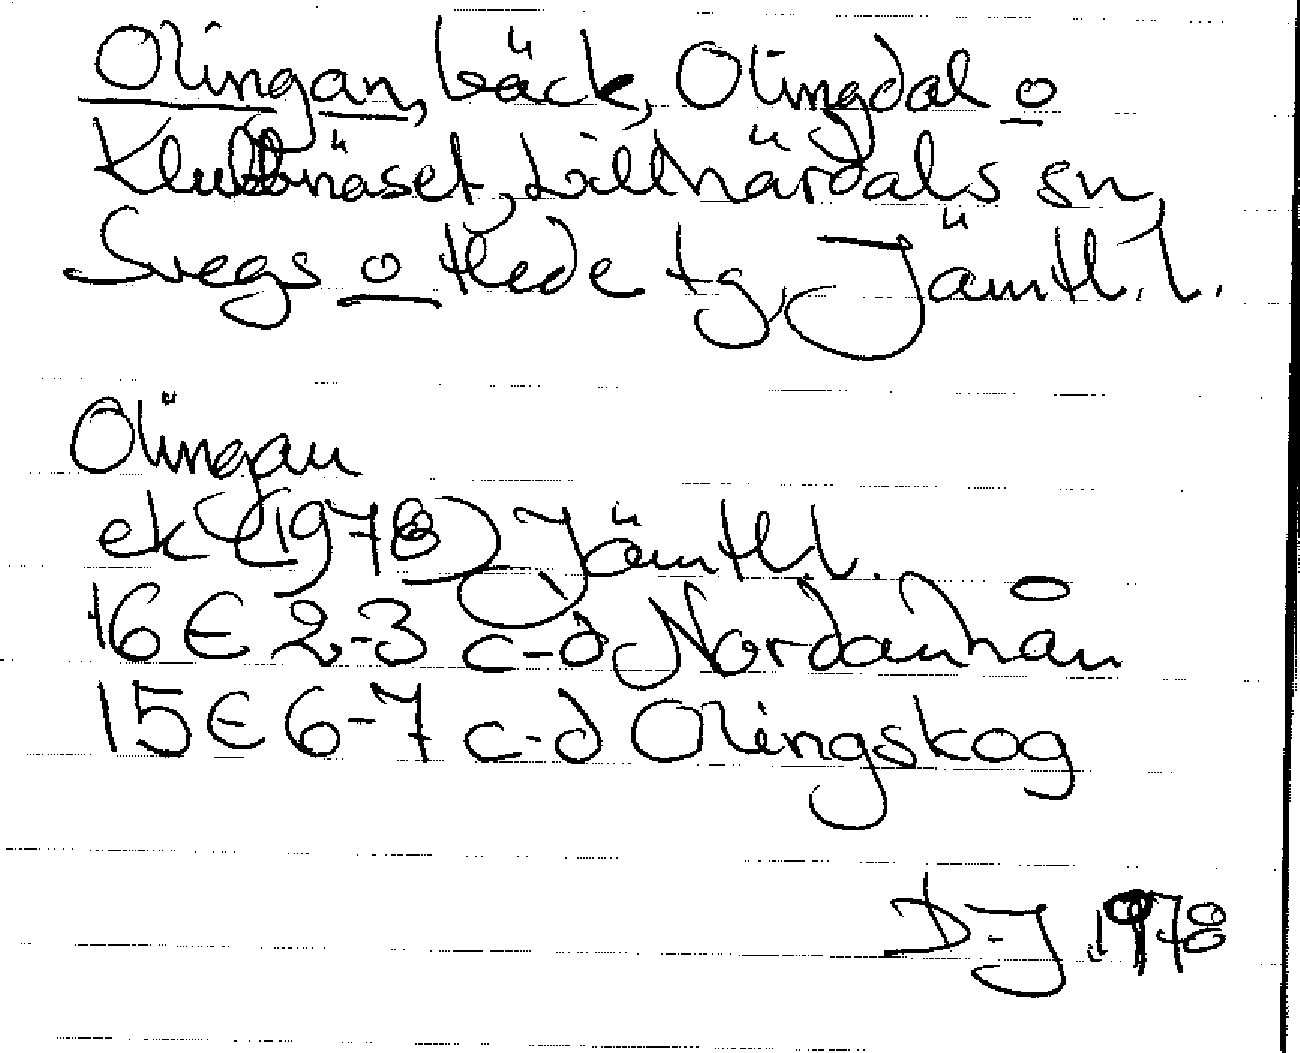 Olingan, bäck, Olingdal o
Klubbnäset, Lillhärdals sn,
Svegs o Hede tg, Jämtl. l.
Olingan
ek (1978) Jämtl. l.
16 E 2-3 c-d Nordanhån
15 E 6-7 c-d Olingskog
D-J 1978